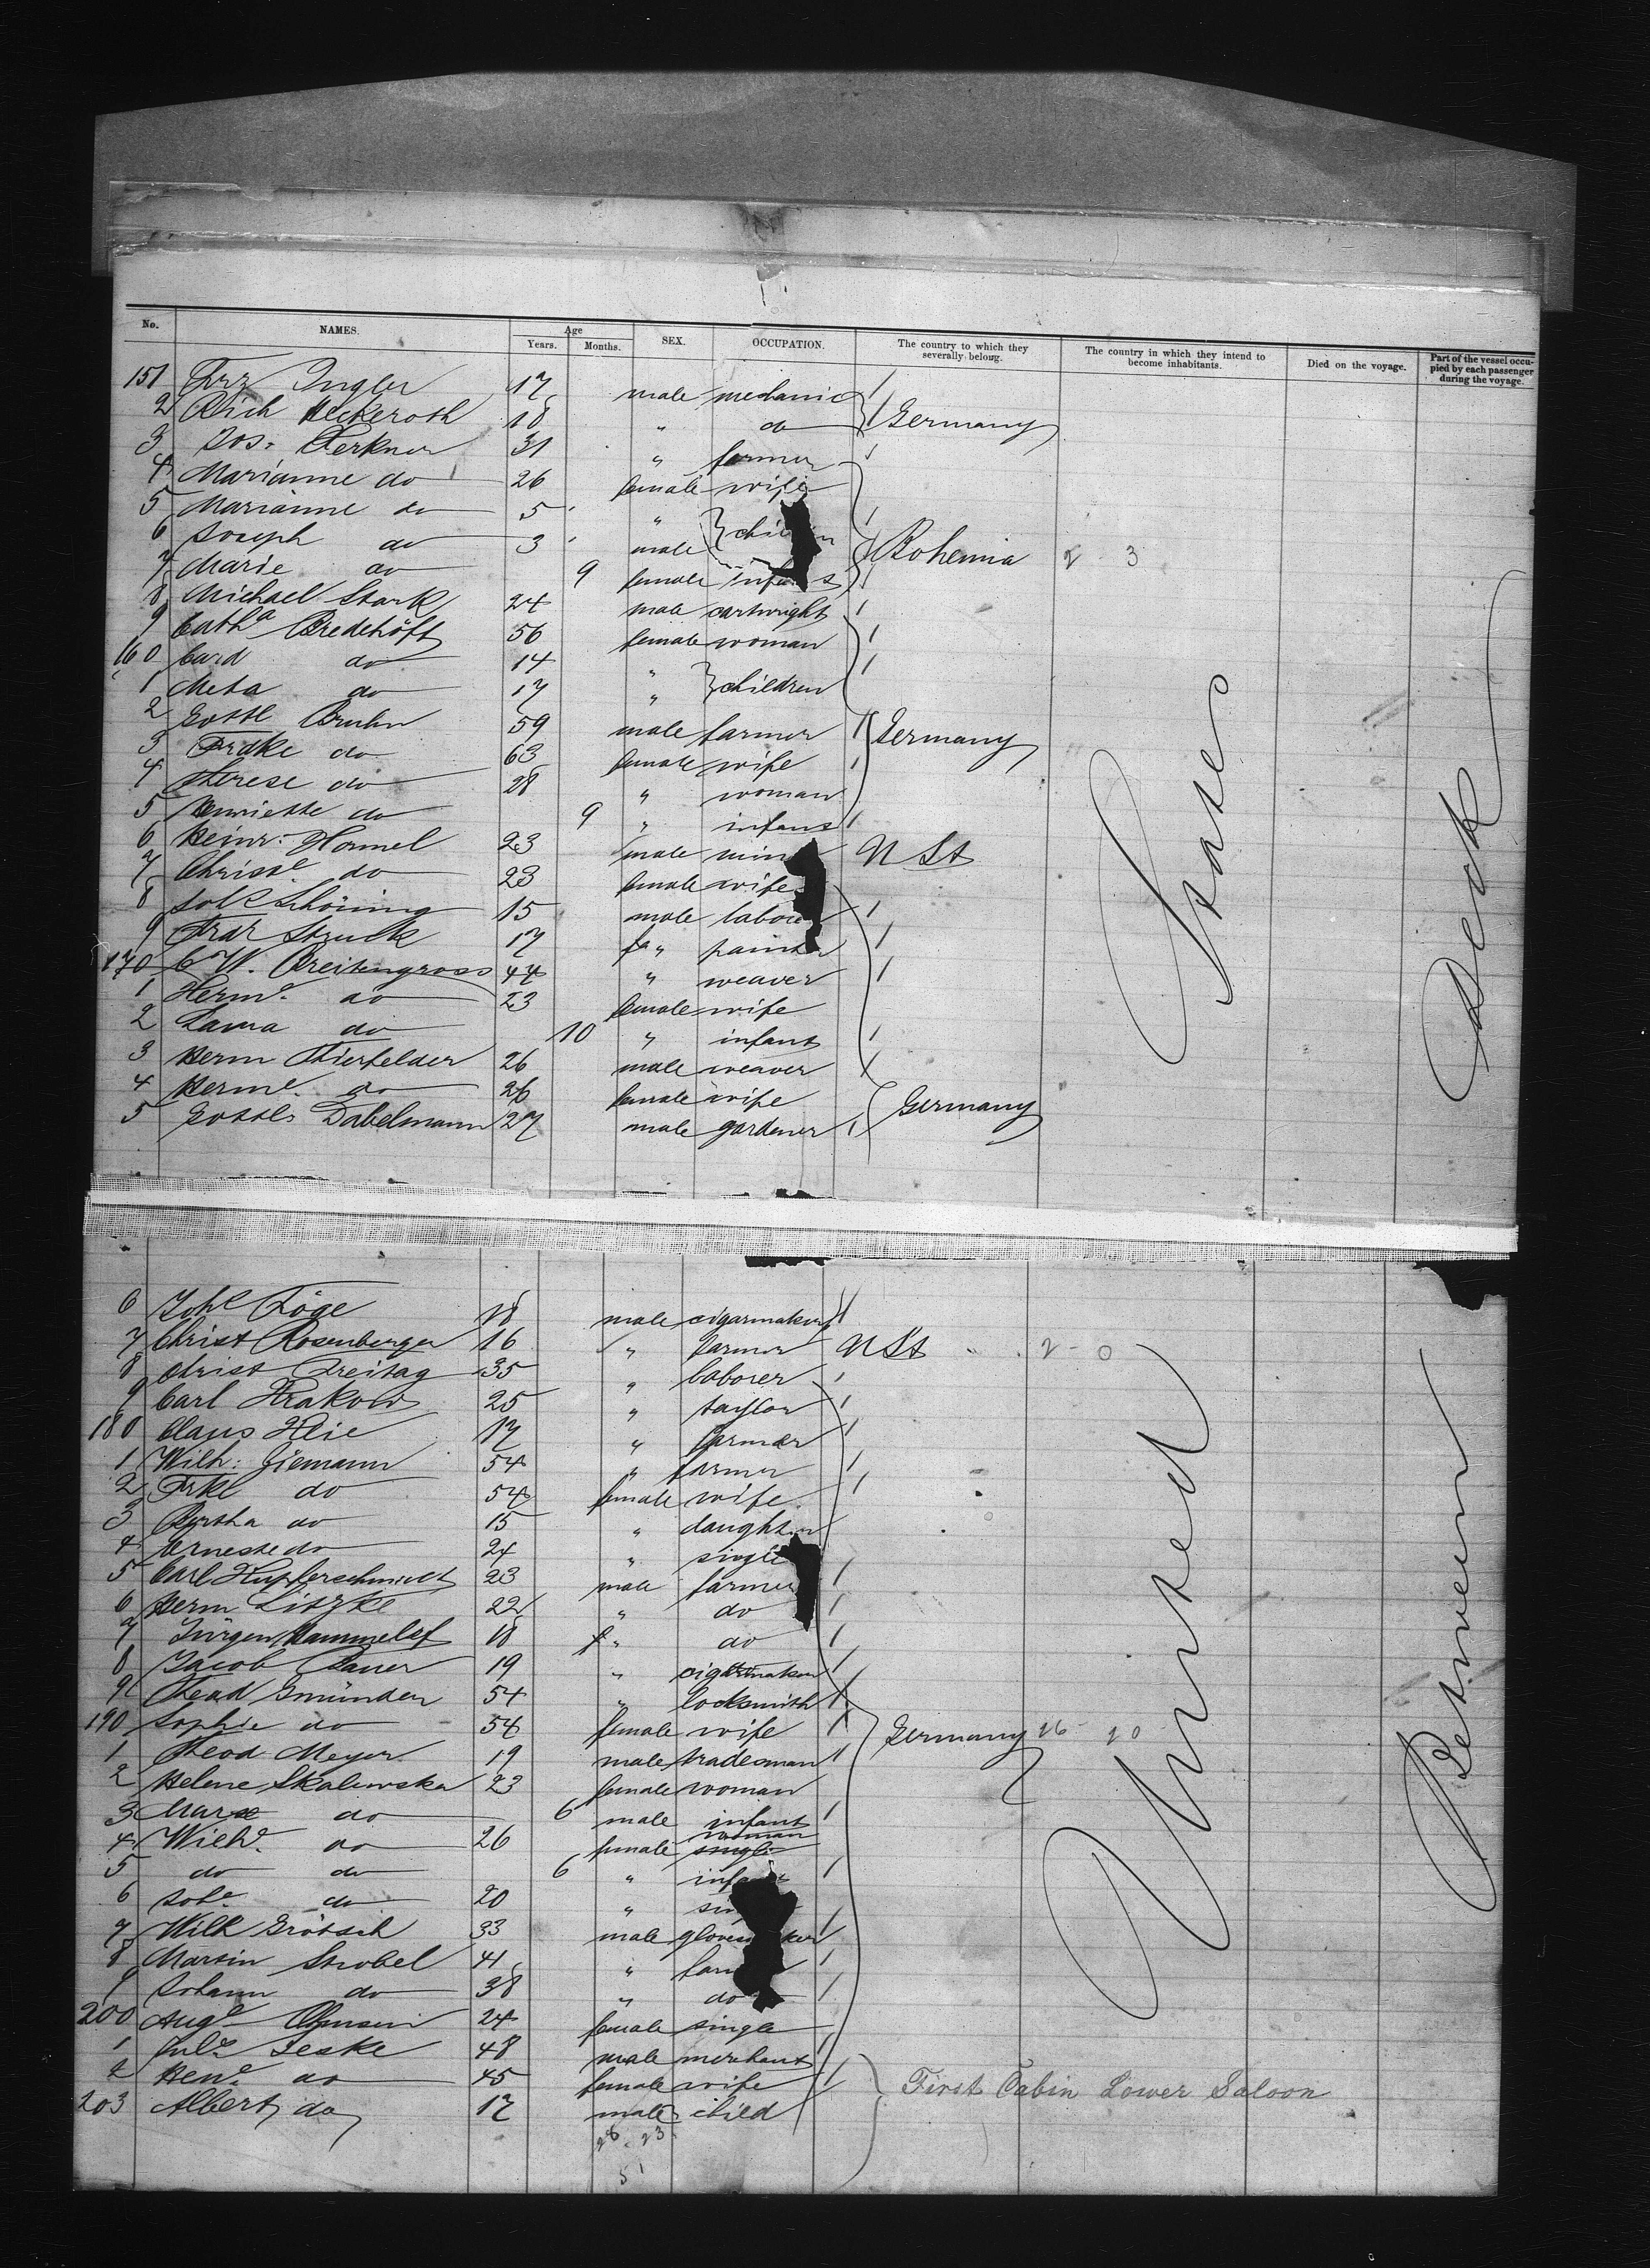 No. NAMES. Age Years. Months. SEX. OCCUPATION. The country to which they severally belong. The country in which they intend to become inhabitants. Died on the voyage. Part of the vessel occupied by each passenger during the voyage.
151 Frz Ingler 17 male mechanic
2 Heckeroth 18 " do Germany
3 Jos. Perkner 31 " farmer
4 Marianne do 26 female wife
5 Marianne do 5 "
6 Joseph do 3 male
7 Marie do 9 female
Bohemia 2 - 3
8 Michael Stark 24 male cartwright
9 Cath.a Bredehöft 56 female woman
160 do 14 "
1 Meta do 17 " children
2 Gottl Bruhn 59 male farmer Germany
3 Frdke do 63 female wife
4 Therese do 28 " woman
5 Henriette do 9 " infant
6 Heinr. Homel 23 male N St
7 Christ.e do 23 female wife
8 Schöning 15 male
9 Frdr Struck 17 "
170 C W. Breitengross 44 " weaver
1 Herm.e do 23 female wife
2 do 10 " infant
3 Herm Thierfelder 26 male weaver
4 Herm.e do 26 female wife
5 Gottl. Dabelmann 27 male gardener Germany
6 18 male cigarmaker
7 Christ Rosenberger 16 " farmer N St 2 - 0
8 Christ Freitag 35 " laborer
9 Carl Krakow 25 " taylor
180 Claus 17 " farmer
1 Wilh: Giemann 54 " farmer
2 Frke do 54 female wife
3 Bertha do 15 "
4 Erneste do 24 " single
5 Carl Kupferschmidt 23 male farmer
6 Herm Litzke 22 " do
7 Jürgen 18 " do
8 Jacob 19 " cigarmaker
9 Gmünder 54 " locksmith
190 Sophie do 54 female wife Germany 26 - 20
1 Theod Meyer 19 male tradesman
2 Helene Skalewska 23 female woman
3 Max do 6 male infant
4 Wilh.e do 26 female woman
5 do do 6 "
6 do 20 "
7 Wilh Grötsch 33 male
8 Martin Strobel 41 "
9 Johann do 38 " do
200 Aug.e 24 female single
1 Jul.s Jeske 48 male merchant
2 Hen.e do 45 female wife First Cabin Lower Saloon
203 Albert do 17 male child
28 . 23
51
United
States
Between
Deck